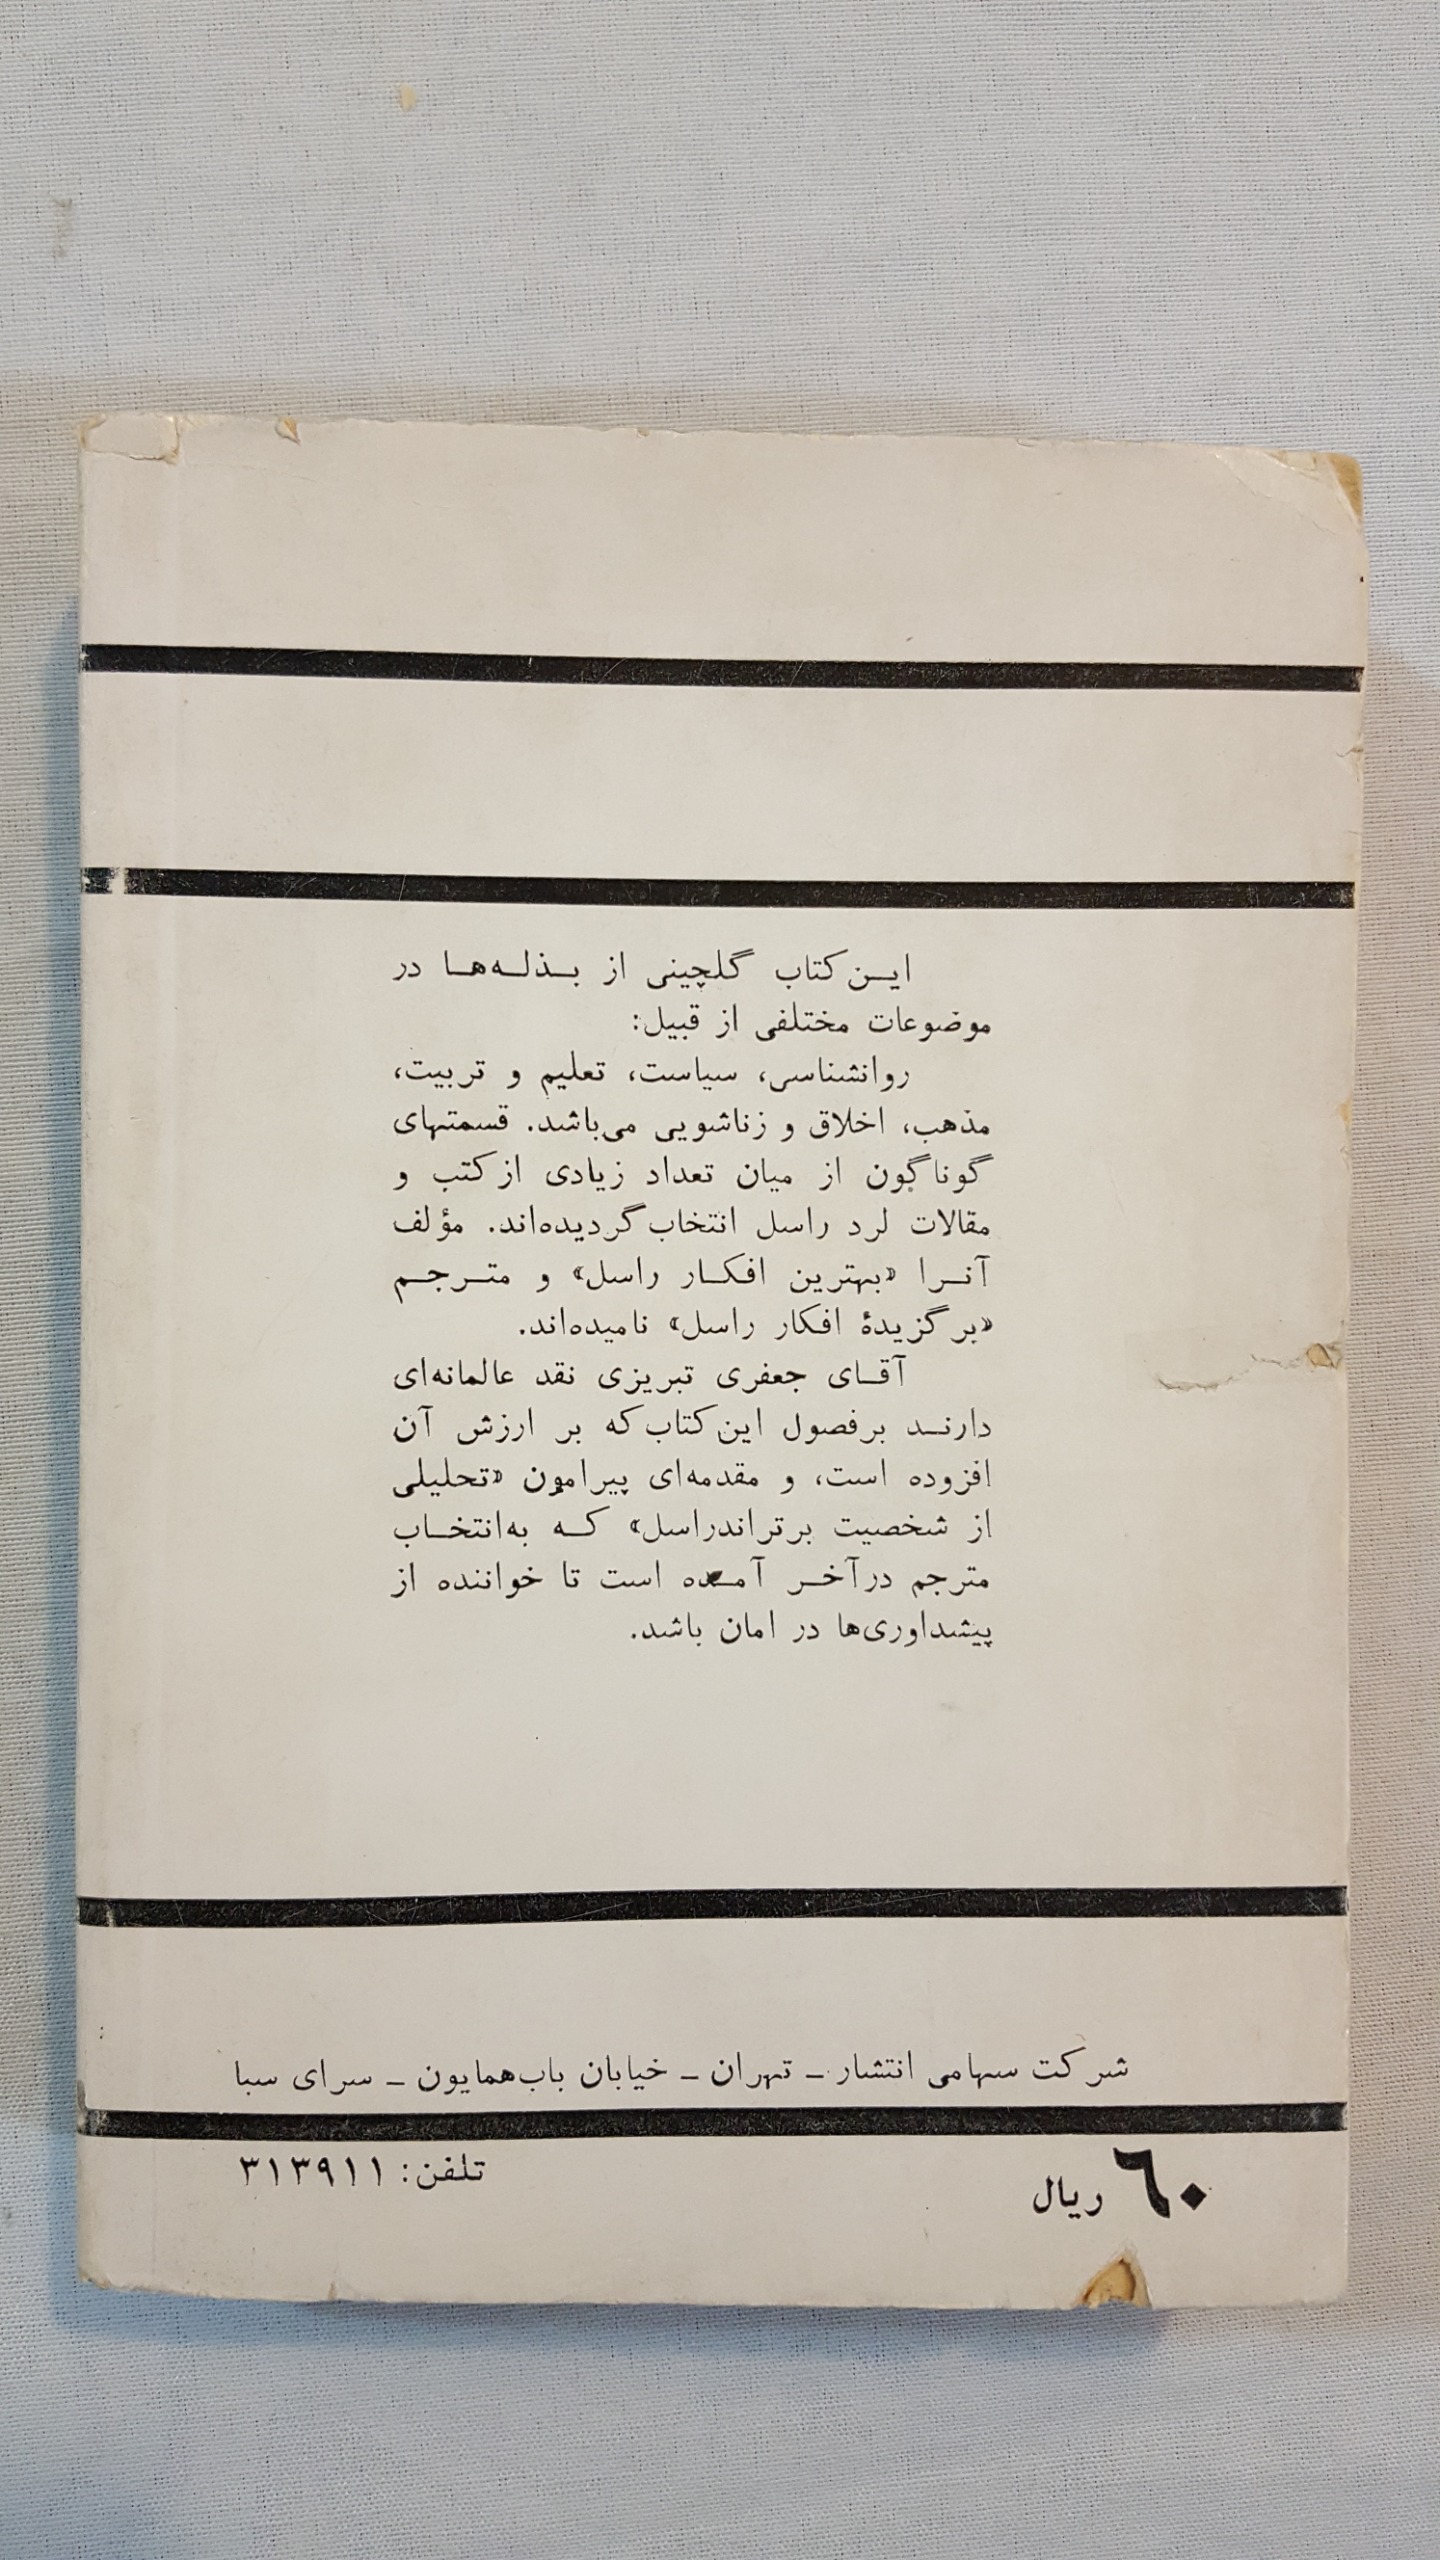 این کتاب گلچینی از بذله‌ها در
موضوعات مختلفی از قبیل:
روانشناسی، سیاست، تعلیم و تربیت،
مذهب، اخلاق و زناشویی می‌باشد. قسمتهای
گوناگون از میان تعداد زیادی از کتب و
مقالات لرد راسل انتخاب گردیده‌اند. مؤلف
آنرا «بهترین افکار راسل» و مترجم
«برگزیدهٔ افکار راسل» نامیده‌اند.
آقای جعفری تبریزی نقد عالمانه‌ای
دارند بر فصول این کتاب که بر ارزش آن
افزوده است، و مقدمه‌ای پیرامون «تحلیلی
از شخصیت برتراندراسل» که به‌انتخاب
مترجم در آخر آمده است تا خواننده از
پیشداوری‌ها در امان باشد.
شرکت سهامی انتشار ـ تهران ـ خیابان باب‌همایون ـ سرای سبا
۶۰ ریال
تلفن: ۳۱۳۹۱۱